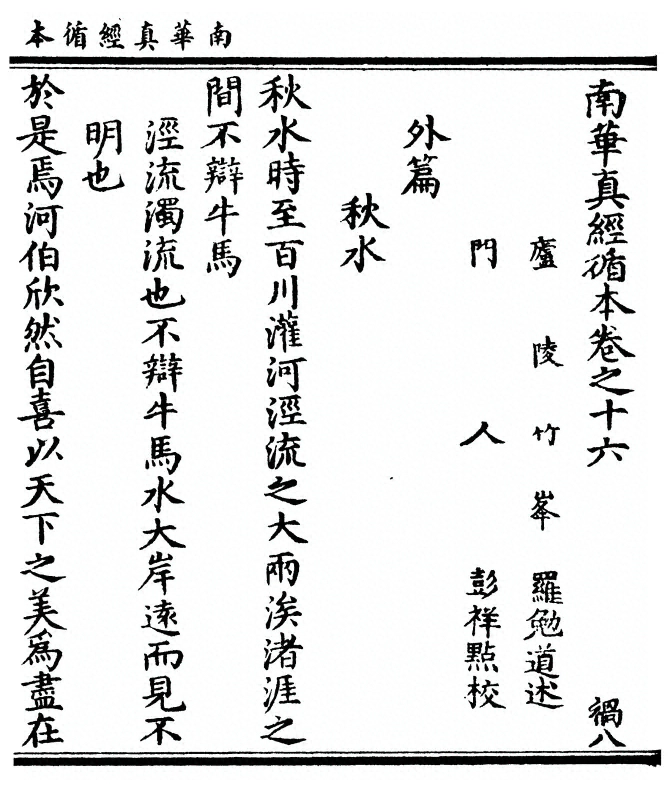 南華真經循本
南華真經循本卷之十六 禍八
廬陵竹峯羅勉道述
門人彭祥點校
外篇
秋水
秋水時至百川灌河涇流之大兩涘渚涯之
間不辯牛馬
涇流濁流也不辯牛馬水大岸遠而見不
明也
於是焉河伯欣然自喜以天下之美為盡在